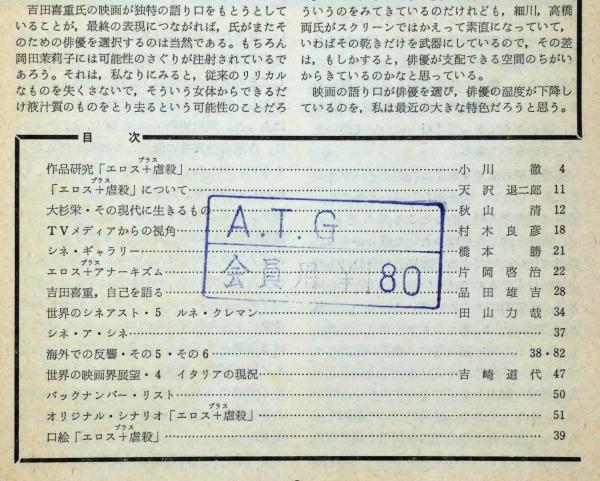 吉田喜重氏の映画が独特の語り口をもとうとして
いることが，最終の表現につながれば，氏がまたそ
のための俳優を選択するのは当然である。もちろん
岡田茉莉子には可能性のさぐりが注射されているで
あろう。それは，私なりにみると，従来のリリカル
なものを失くさないで，そういう女体からできるだ
け液汁質のものをとり去るという可能性のことだろ
ういうのをみてきているのだけれども，細川，高橋
両氏がスクリーンではかえって素直になっていて，
いわばその乾きだけを武器にしているので，その差
は，もしかすると，俳優が支配できる空間のちがい
からきているのかなと思っている。
映画の語り口が俳優を選び，俳優の湿度が下降し
ているのを，私は最近の大きな特色だろうと思う。
目 次
作品研究「エロス＋虐殺」 小川 徹 4
プラス
「エロス＋虐殺」について 天沢 退二郎 11
プラス
大杉栄・その現代に生きるもの 秋山 清 12
TVメディアからの視角 村木 良彦 18
シネ・ギャラリー 橋本 勝 21
エロス＋アナーキズム 片岡 啓治 22
プラス
吉田喜重，自己を語る 品田 雄吉 28
世界のシネアスト・5 ルネ・クレマン 田山 力哉 34
シネ・ア・シネ 37
海外での反響・その5・その6 38・82
世界の映画界展望・4 イタリアの現況 吉崎 道代 47
バックナンバー・リスト 50
オリジナル・シナリオ「エロス＋虐殺」 51
プラス
口絵「エロス＋虐殺」 39
プラス
A.T.G
会員用 ¥180